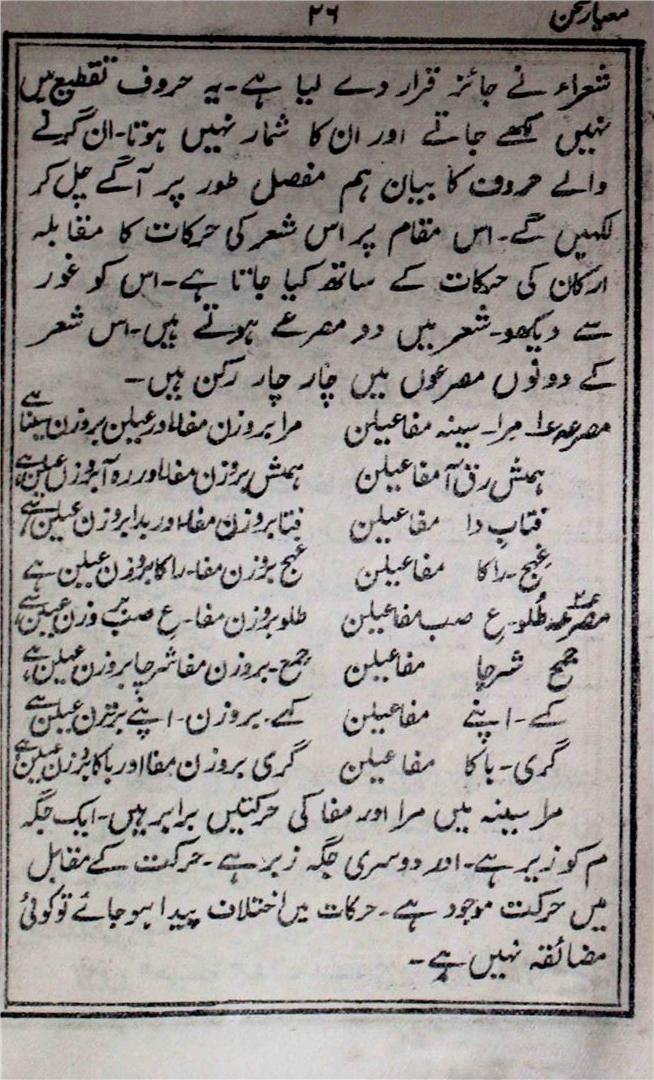 معیار سخن
۲۶
شعراء نے جائز قرار دے لیا ہے۔ یہ حروف تقطیع میں
نہیں لکھے جاتے اور ان کا شمار نہیں ہوتا۔ ان گرنے
والے حروف کا بیان ہم مفصل طور پر آگے چل کر
لکھیں گے۔ اس مقام پر اس شعر کی حرکات کا مقابلہ
ارکان کی حرکات کے ساتھ کیا جاتا ہے۔ اس کو غور
سے دیکھو۔ شعر میں دو مصرعے ہوتے ہیں۔ اس شعر
کے دونوں مصرعوں میں چار چار رکن ہیں۔
مصرعہ ۱ مرا۔ سینہ مفاعیلن مرا بروزن مفا۔ اور عیلن بروزن سینا ہے
ہمش رق آ مفاعیلن ہمش بروزن مفا۔ اور رہ آ بروزن عیلن ہے،
فتاب دا مفاعیلن فتا بروزن مفا۔ اور بدا بروزن عیلن ہے،
غہج۔ راکا مفاعیلن غہج بروزن مفا۔ راکا بروزن عیلن ہے
مصرعہ ۲ طُلو۔ عِ صب مفاعیلن طلو بروزن مفا۔ عِ صب وزن عیلن ہے،
جمح شرچا مفاعیلن جمع۔ بروزن مفا شرچا بروزن عیلن ہے،
کے۔ اپنے مفاعیلن کے۔ بروزن۔ اپنے بروزن عیلن ہے
گری۔ باکا مفاعیلن گری بروزن مفا اور باکا بروزن عیلن ہے
مرا سینہ میں مرا اور مفا کی حرکتیں برابر ہیں۔ ایک جگہ
م کو زیر ہے۔ اور دوسری جگہ زبر ہے۔ حرکت کے مقابل
میں حرکت موجود ہے۔ حرکات میں اختلاف پیدا ہو جائے تو کوئی
مضائقہ نہیں ہے۔